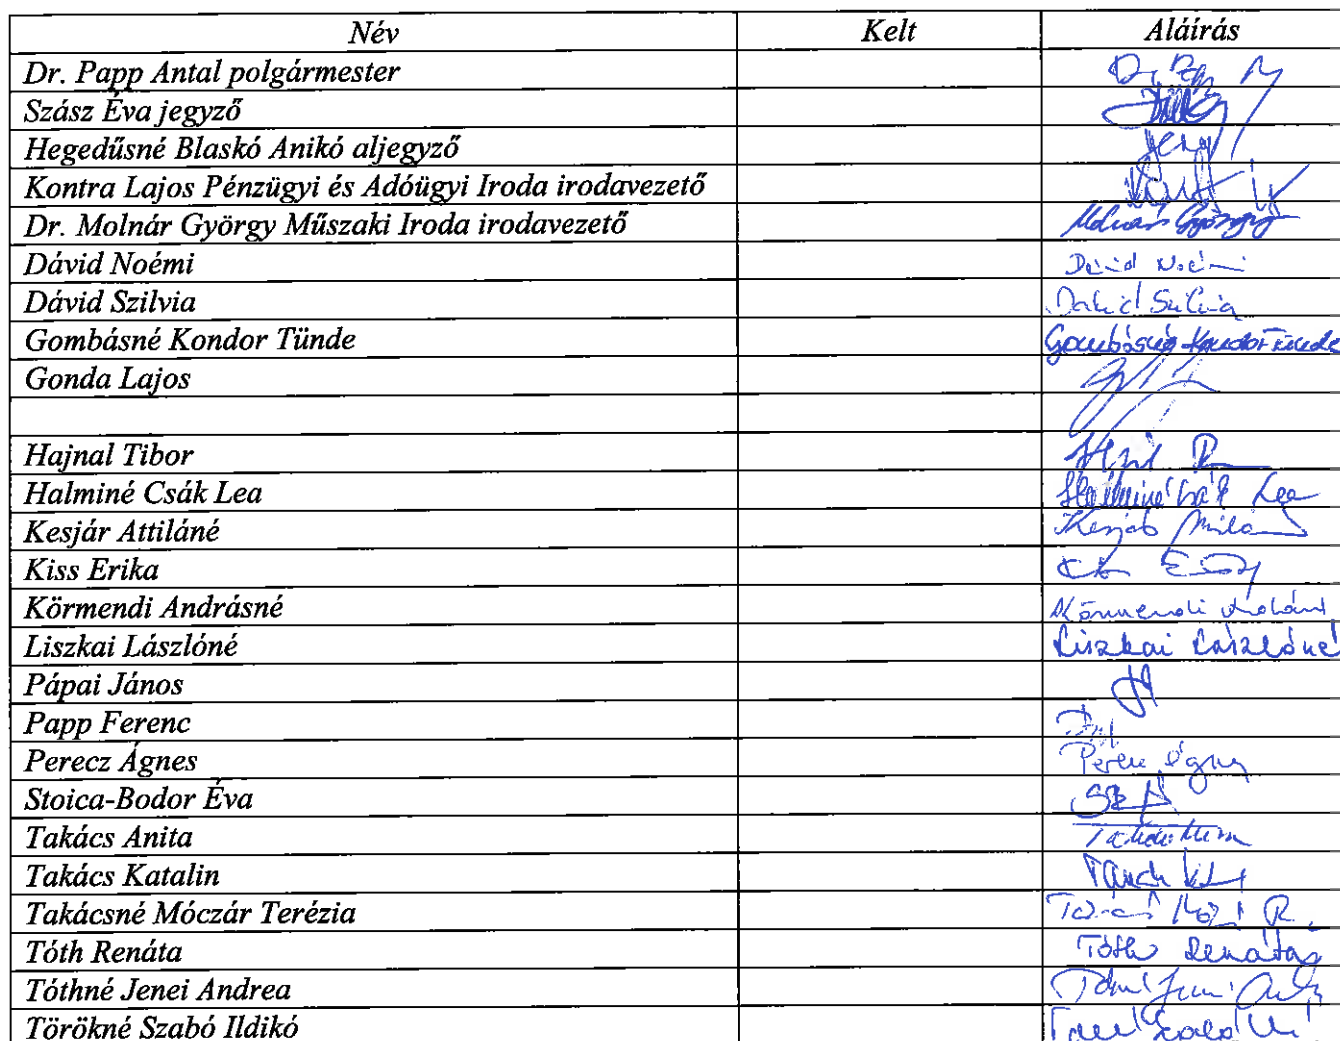 Név Kelt Aláírás
Dr. Papp Antal polgármester
Szász Éva jegyző
Hegedűsné Blaskó Anikó aljegyző
Kontra Lajos Pénzügyi és Adóügyi Iroda irodavezető
Dr. Molnár György Műszaki Iroda irodavezető Molnár György
Dávid Noémi Dávid Noémi
Dávid Szilvia Dávid Szilvia
Gombásné Kondor Tünde Gombásné Kondor Tünde
Gonda Lajos
Hajnal Tibor
Halminé Csák Lea Halminé Csák Lea
Kesjár Attiláné
Kiss Erika
Körmendi Andrásné Körmendi
Liszkai Lászlóné Liszkai Lászlóné
Pápai János
Papp Ferenc
Perecz Ágnes Perecz Ágnes
Stoica-Bodor Éva
Takács Anita
Takács Katalin
Takácsné Móczár Terézia
Tóth Renáta Tóth Renáta
Tóthné Jenei Andrea
Törökné Szabó Ildikó